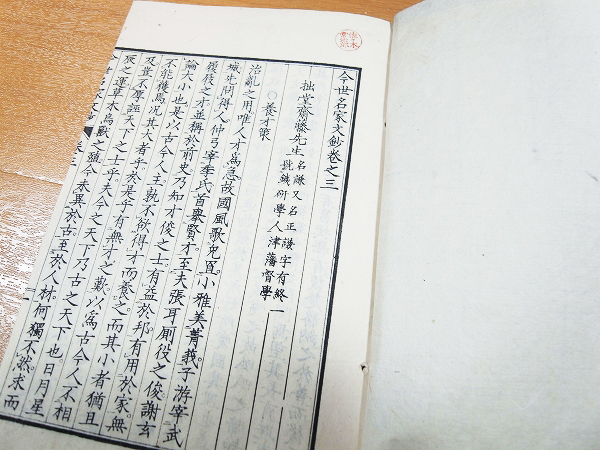 今世名家文鈔卷之三
拙堂齋藤先生 名謙又名正謙字有終一
號鐵研學人津藩督學
○養才策
治亂之用唯人才爲急故國風歌兔罝小雅美菁莪子游宰武
城先問得人仲弓宰季氏首舉賢才至夫張耳厠役之俊謝玄
履屐之才並稱於前史乃知才俊之士有益於邦有用於家無
論大小也是以古今人主孰不欲得才而養之而其小者猶且
不能獲焉況其大者乎於是乎有無才之歎以爲古今人不相
及豈不厚誣天下之士乎夫今之天下乃古之天下也日月星
辰之運草木鳥獸之殖今未異於古至於人材何獨不然求而
今世名家文鈔 卷三 一